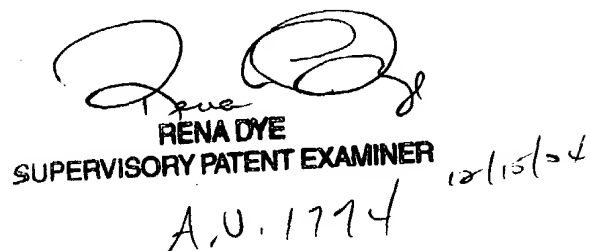 Rena Dye
RENA DYE
SUPERVISORY PATENT EXAMINER 12/15/04
A.U. 1774